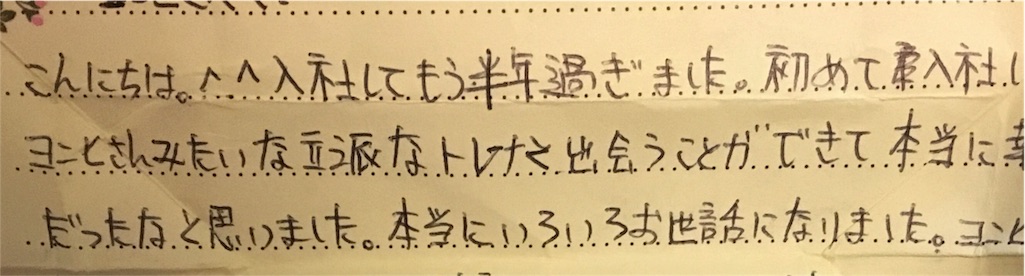 こんにちは。^^入社してもう半年過ぎました。初めて入社し
ヨンヒさんみたいな立派なトレナと出会うことができて本当に幸
だったなと思いました。本当にいろいろお世話になりました。ヨンヒ